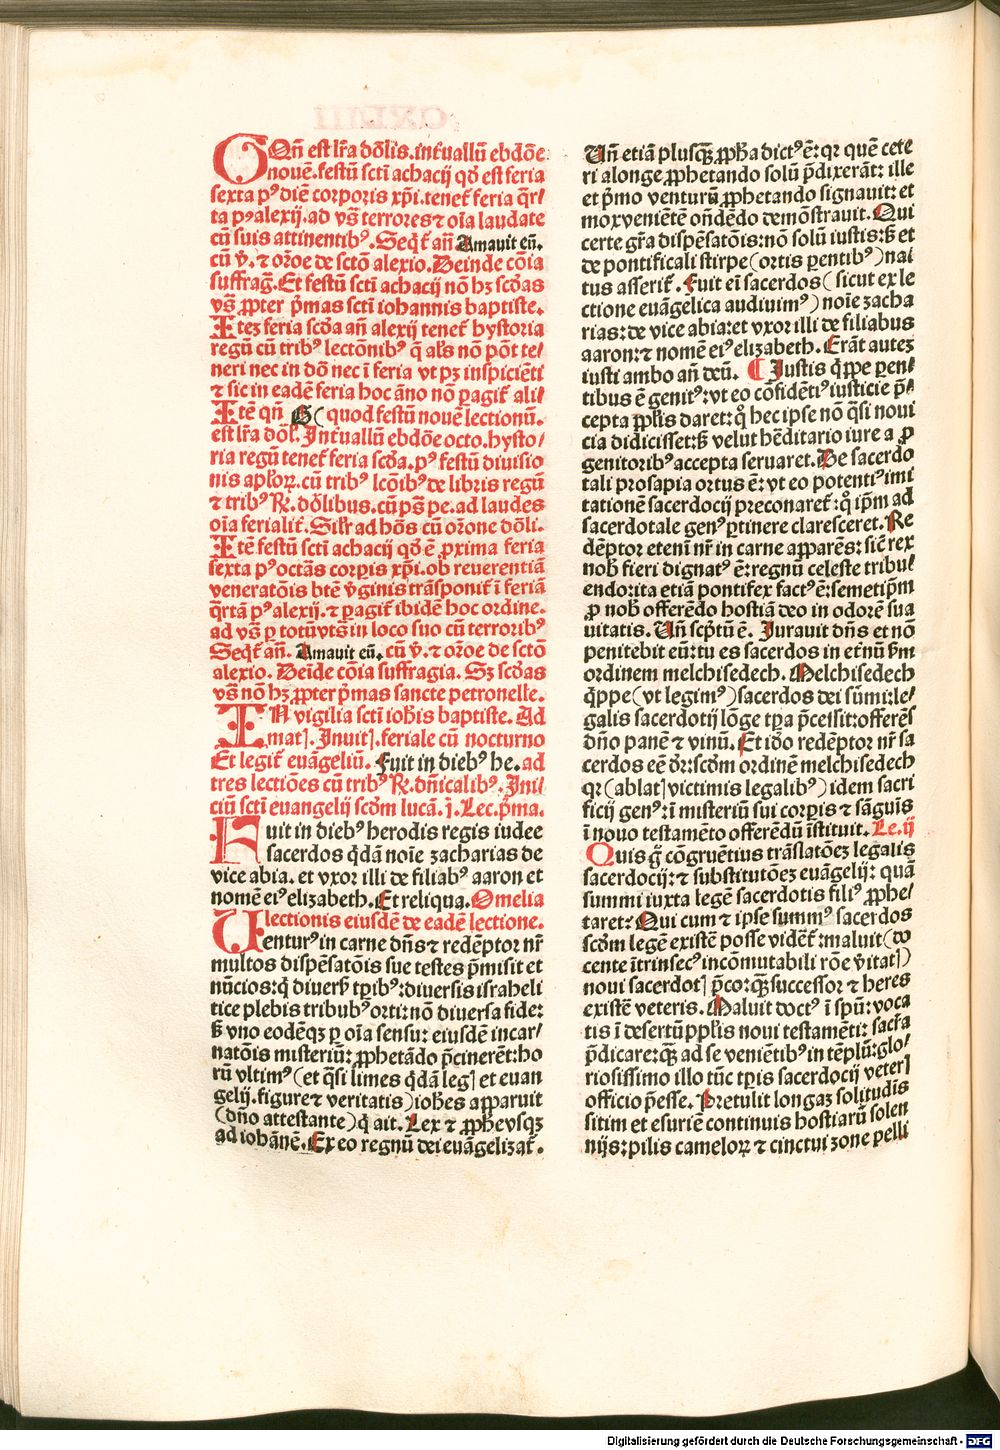 COQn̄ est lr̄a dn̄o̅lis. int̕uallū ebdōe
nouē. festū sctī achacij qd̕ est feria
sexta pꝰ diē corporis xp̄i. tenet᷑ feria q̄r/
ta pꝰ alexij. ad vs̄ terrores ⁊ oīa laudate
cū suis attinentibꝰ. Seqt᷑ an̄ Amauit eū.
cū v̕. ⁊ or̄oe de sctō alexio. Deinde cōia
suffrag̅. Et festū sctī achacij nō hꝫ scd̕as
vs̄ ꝓpter p̕mas sctī iohannis baptiste.
Itez feria scd̕a an̄ alexij tenet᷑ hystoria
regū cū tribꝰ lectōnibꝰ q̄ al̕s nō pōt te/
neri nec in dō nec ī feria vt pꝫ inspiciēti
⁊ sic in eadē feria hoc āno nō ꝑagit᷑ ali/
Itē qn̄ G (quod festū nouē lectionū.
est lr̄a dōl̕. Int̕uallū ebdōe octo. hysto/
ria regū tenet᷑ feria scd̕a. pꝰ festū diuisio
nis apl̕oꝝ. cū tribꝰ lcōībꝰ de libris regū
⁊ tribꝰ ℟. dōlibus. cū ps̄ pe. ad laudes
oīa ferialit̕. Silr̄ ad hōs cū or̄one dōli.
Itē festū sctī achacij qd̕ ē ꝓxima feria
sexta pꝰ octās corp̱is xp̄i. ob reuerentiā
veneratōis btē v̕ginis trāsponit᷑ ī feriā
q̄rtā pꝰ alexij. ⁊ ꝑagit᷑ ibidē hoc ordine.
ad vs̄ ꝑ totū vts̄ in loco suo cū terroribꝰ
Seqt᷑ an̄. Amauit eū. cū v̕. ⁊ or̄oe de sctō
alexio. Deīde cōia suffragia. Sꝫ scd̕as
vs̄ nō hꝫ ꝓpter p̕mas sancte petronelle.
IN vigilia sctī ioh̄is baptiste. Ad
matꝭ. Inuitꝭ. feriale cū nocturno
Et legit᷑ euāgeliū. Fuit in diebꝰ he. ad
tres lectiōes cū tribꝰ ℟. dn̄icalibꝰ. Ini/
ciū sctī euangelij scd̕m lucā. j. Lec. p̕ma.
Fuit in diebꝰ herodis regis iudee
sacerdos qd̕ā noīe zacharias de
vice abia. et vxor illi de filiabꝰ aaron et
nomē eiꝰ elizabeth. Et reliqua. Omelia
lectionis eiusdē de eadē lectione.
Uenturꝰ in carne dn̄s ⁊ redēptor nr̄
multos dispēsatōis sue testes p̄misit et
nūcios: q̕ diuersꝭ tp̱ibꝰ: diuersis israheli
tice plebis tribubꝰ orti: nō diuersa fide:
sꝫ vno eodēqꝫ ꝑ oīa sensu: eiusdē incar/
natōis misteriū: ꝓphetādo p̄cinerēt: ho
rū vltimꝰ (et q̄si limes qd̕ā legꝭ et euan
gelij. figure ⁊ veritatis) ioh̄es apparuit
(dn̄o attestante) q̕ ait. Lex ⁊ ꝓphe vsqꝫ
ad iohānē. Ex eo regnū dei euāgelizat᷑.
Un̄ etiā plusqꝫ ꝓph̄a dictꝰ ē: qr̕ quē cete
ri alonge ꝓphetando solū p̄dixerāt: ille
et p̕mo venturū ꝓphetando signauit: et
mox veniētē on̄dēdo demōstrauit. Qui
certe gr̄a dispēsatōis: nō solū iustis: sꝫ et
de pontificali stirpe (ortis ꝑentibꝰ) nai
tus asserit᷑. Fuit ei̅ sacerdos (sicut ex le
ctione euāgelica audiuimꝰ) noīe zacha
rias: de vice abia: et vxor illi de filiabus
aaron: ⁊ nomē eiꝰ elizabeth. Erāt autez
iusti ambo an̄ deū. ¶ Iustis q̕ppe ꝑen/
tibus ē genitꝰ: vt eo cōfidētiꝰ iusticie p̄/
cepta ppl̕is daret: qͦ hec ipse nō q̄si noui
cia didicisset: sꝫ velut hēditario iure a ꝓ
genitoribꝰ accepta seruaret. De sacerdo
tali prosapia ortus ē: vt eo potentiꝰ imi
tationē sacerdocij preconaret᷑: qͦ ip̄m ad
sacerdotale genꝰ ꝑtinere claresceret. Re
dēptor eteni̅ nr̄ in carne apparēs: sic̄ rex
nobꝭ fieri dignatꝰ ē: regnū celeste tribu/
endo: ita etiā pontifex factꝰ ē: semetip̄m
ꝓ nobꝭ offerēdo hostiā deo in odorē sua
uitatis. Un̄ scp̕tū ē. Iurauit dn̄s et nō
penitebit eū: tu es sacerdos in et̕nū scd̕m
ordinem melchisedech. Melchisedech
q̕ppe (vt legimꝰ) sacerdos dei sūmi: le/
galis sacerdotij lōge tp̱a p̄cessit: offerēs
dn̄o panē ⁊ vinū. Et iō̕ redēptor nr̄ sa
cerdos eē dr̄: scd̕m ordinē melchisedech
qr̕ (ablatꝭ victimis legalibꝰ) idem sacri
ficij genꝰ: ī misteriū sui corp̱is ⁊ sāguīs
ī nouo testamēto offerēdū īstituit. Le. ij
Quis g̕ cōgruētius trāslatōez legalis
sacerdocij: ⁊ substitutōez euāgelij: quā
summi iuxta legē sacerdotis filiꝰ ꝓphe/
taret: Qui cum et ipse summꝰ sacerdos
scd̕m legē existē posse videt᷑: maluit (do
cente ītrinsecꝰ incōmutabili rōe v̕itatꝭ)
noui sacerdotꝭ p̄co: qꝫ successor ⁊ heres
existē veteris. Maluit doctꝰ ī spū: voca
tis ī desertū ppl̕is noui testamēti: sacr̄a
p̄dicare: qꝫ ad se veniētibꝰ in tēplū: glo/
riosissimo illo tūc tp̱is sacerdocij veterꝭ
officio p̄esse. Pretulit longaz solitudīs
sitim et esuriē continuis hostiarū solen
nijs: pilis cameloꝝ ⁊ cinctui zone pelli
Digitalisierung gefördert durch die Deutsche Forschungsgemeinschaft - DFG